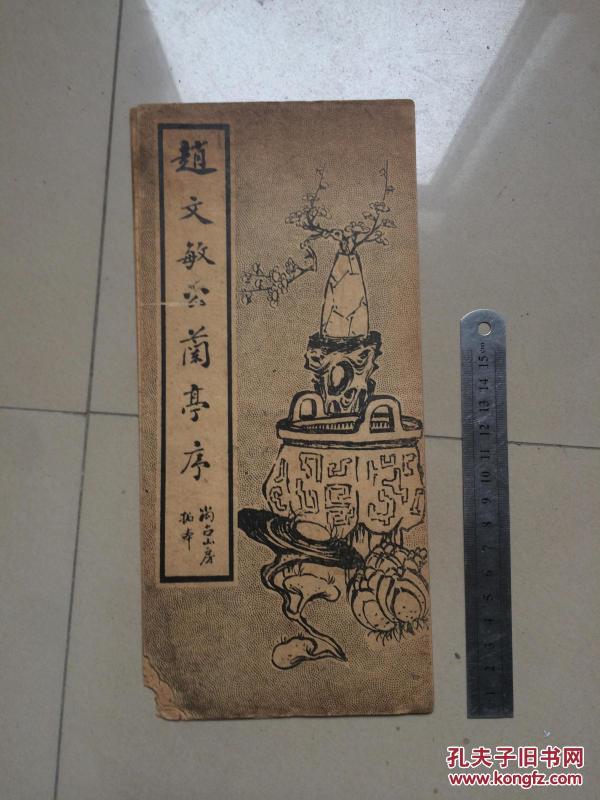 趙文敏公蘭亭序
尚古山房
拓本
15cm
14
13
12
11
10
9
8
7
6
5
4
3
2
1
孔夫子旧书网
www.kongfz.com